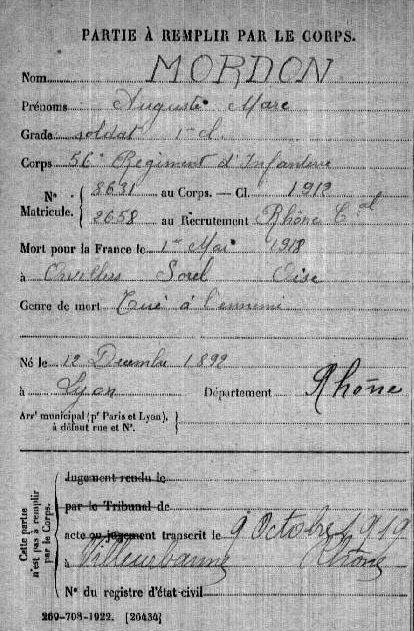 PARTIE À REMPLIR PAR LE CORPS.
Nom MORDON
Prénoms Auguste Marc
Grade soldat 1e cl.
Corps 56e Régiment d'Infanterie
N° Matricule. 8631 au Corps. — Cl. 1912
2658 au Recrutement Rhône Cal
Mort pour la France le 1er Mai 1918
à Orvillers Sorel Oise
Genre de mort Tué à l'ennemi
Né le 12 Décembre 1892
à Lyon Département Rhône
Arrt municipal (pr Paris et Lyon),
à défaut rue et N°.
Cette partie n'est pas à remplir par le Corps.
Jugement rendu le
par le Tribunal de
acte ou jugement transcrit le 9 Octobre 1919
à Villeurbanne Rhône
N° du registre d'état-civil
269-708-1922. [26434]